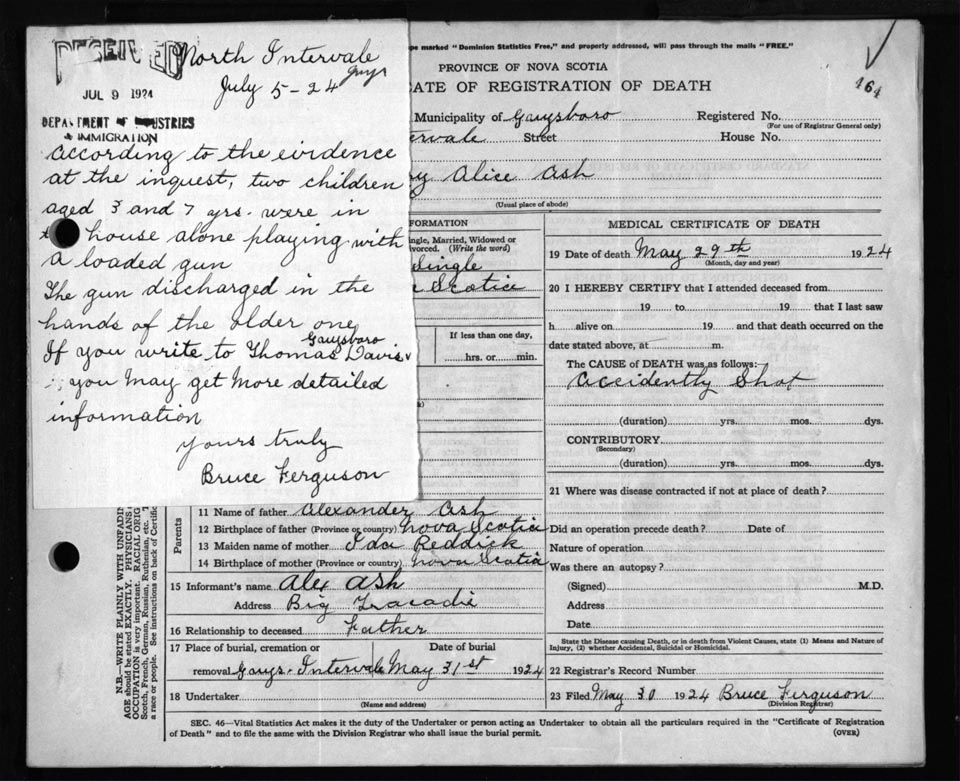 RECEIVED
North Intervale
Guys
July 5-24
JUL 9 1924
DEPARTMENT OF INDUSTRIES
& IMMIGRATION
according to the evidence
at the inquest, two children
aged 3 and 7 yrs. were in
house alone playing with
a loaded gun
The gun discharged in the
hands of the older one
Guysboro
If you write to Thomas Davis
you may get more detailed
information
yours truly
Bruce Ferguson
pe marked "Dominion Statistics Free," and properly addressed, will pass through the mails "FREE."
164
PROVINCE OF NOVA SCOTIA
CATE OF REGISTRATION OF DEATH
Municipality of Guysboro Registered No.
(For use of Registrar General only)
ervale Street House No.
y Alice Ash
(Usual place of abode)
FORMATION
ingle, Married, Widowed or
vorced. (Write the word)
Single
Scotia
If less than one day,
hrs. or min.
Parents
11 Name of father Alexander Ash
12 Birthplace of father (Province or country) Nova Scotia
13 Maiden name of mother Ida Reddick
14 Birthplace of mother (Province or country) Nova Scotia
15 Informant's name Alex Ash
Address Big Tracadie
16 Relationship to deceased Father
17 Place of burial, cremation or Date of burial
removal Guys. Intervale May 31st 1924
18 Undertaker
(Name and address)
MEDICAL CERTIFICATE OF DEATH
19 Date of death May 29th 1924
(Month, day and year)
20 I HEREBY CERTIFY that I attended deceased from
19 to 19 that I last saw
h alive on 19 and that death occurred on the
date stated above, at m.
The CAUSE of DEATH was as follows:
Accidently Shot
(duration) yrs. mos. dys.
CONTRIBUTORY
(Secondary)
(duration) yrs. mos. dys.
21 Where was disease contracted if not at place of death?
Did an operation precede death? Date of
Nature of operation
Was there an autopsy?
(Signed) M.D.
Address
Date
State the Disease causing Death, or in death from Violent Causes, state (1) Means and Nature of
Injury, (2) whether Accidental, Suicidal or Homicidal.
22 Registrar's Record Number
23 Filed May 30 1924 Bruce Ferguson
(Division Registrar)
SEC. 46—Vital Statistics Act makes it the duty of the Undertaker or person acting as Undertaker to obtain all the particulars required in the "Certificate of Registration
of Death" and to file the same with the Division Registrar who shall issue the burial permit. (OVER)
N.B.—WRITE PLAINLY WITH UNFADIN
AGE should be stated EXACTLY. PHYSICIANS
OCCUPATION is very important. RACIAL ORIG
Scotch, French, German, Russian, Ruthenian, etc. T
a race or people. See instructions on back of Certific